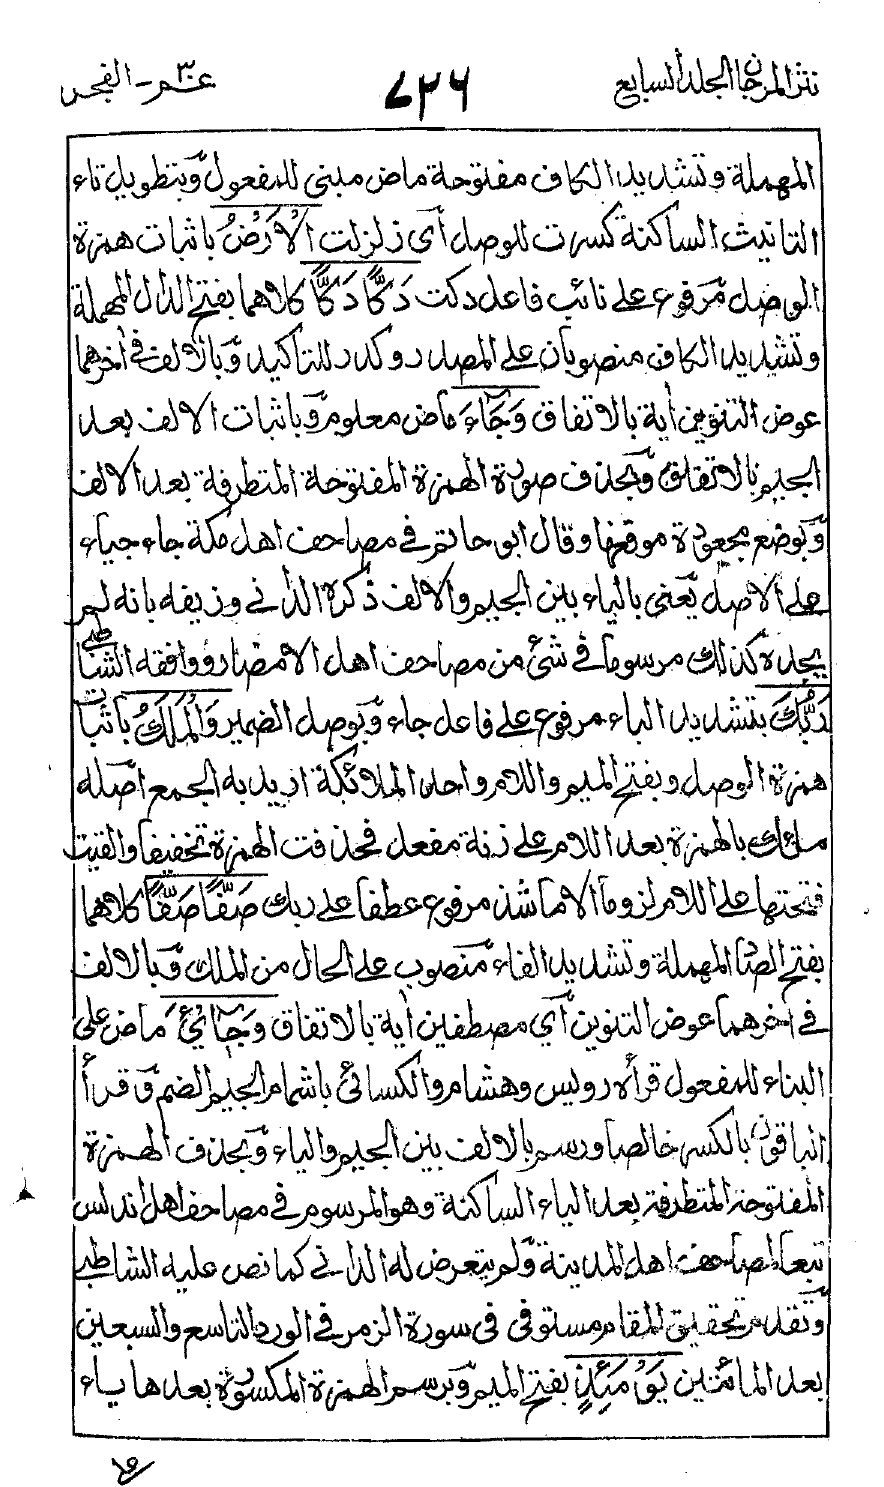 نثر المرجان الجلد السابع
٧٣٦
عم٣٠ - الفجر
المهملة وتشديد الكاف مفتوحة ماض مبنى للمفعول وبتطويل تاء
التانيث الساكنة كسرت للوصل أى زلزلت الْاَرْضُ باثبات همزة
الوصل مرفوع على نائب فاعل دكت دَكًّا دَكًّا كلاهما بفتح الدال المهملة
وتشديد الكاف منصوبان على المصدر وكرر للتاكيد وبالالف فى أخرهما
عوض التنوين أية بالاتفاق وَجَآءَ ماض معلوم وباثبات الالف بعد
الجيم بالاتفاق وبحذف صورة الهمزة المفتوحة المتطرفة بعد الالف
وبوضع مجعودة موقعها وقال ابو حاتم فى مصاحف اهل مكة جاء جياء
على الاصل يعنى بالياء بين الجيم والالف ذكره الدانى وزيفه بانه لم
يجده كذلك مرسوما فى شئ من مصاحف اهل الامصار ووافقه الشاطبى
رَبُّكَ بتشديد الباء مرفوع على فاعل جاء وبوصل الضمير وَالْمَلَكُ باثبات
همزة الوصل وبفتح الميم واللام واحد الملائكة اريد به الجمع اصله
ملئك بالهمزة بعد اللام على زنة مفعل فحذفت الهمزة تخفيفا والقيت
فتحتها على اللام لزوما الا ما شذ مرفوع عطفا على ربك صَفًّا صَفًّا كلاهما
بفتح الصاد المهملة وتشديد الفاء منصوب على الحال من الملك وبالالف
فى أخرهما عوض التنوين أى مصطفين أية بالاتفاق وَجِائْءَ ماض على
البناء للمفعول قرأه رويس وهشام والكسائى باشمام الجيم الضم وقرأ
الباقون بالكسر خالصا ورسم بالالف بين الجيم والياء وبحذف الهمزة
المفتوحة المتطرفة بعد الياء الساكنة وهو المرسوم فى مصاحف اهل اندلس
تبعا لمصاحف اهل المدينة ولم يتعرض له الدانى كما نص عليه الشاطبى
وتقدم تحقيق المقام مستوفى فى سورة الزمر فى الورد التاسع والسبعين
بعد المائتين يَوْمَئِذٍ بفتح الميم وبرسم الهمزة المكسورة بعدها ياء